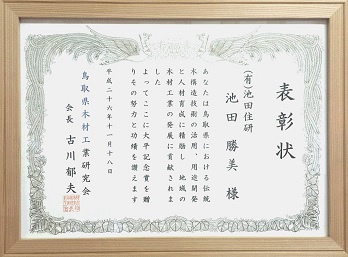 表彰状
(有)池田住研
池田 勝美 様
あなたは鳥取県における伝統
木構造技術の活用、用途開発
と人材育成に精励し、地域の
木材工業の発展に貢献されま
した
よってここに大平記念賞を贈
りその努力と功績を讃えます
平成二十六年十一月十八日
鳥取県木材工業研究会
会長 古川郁夫